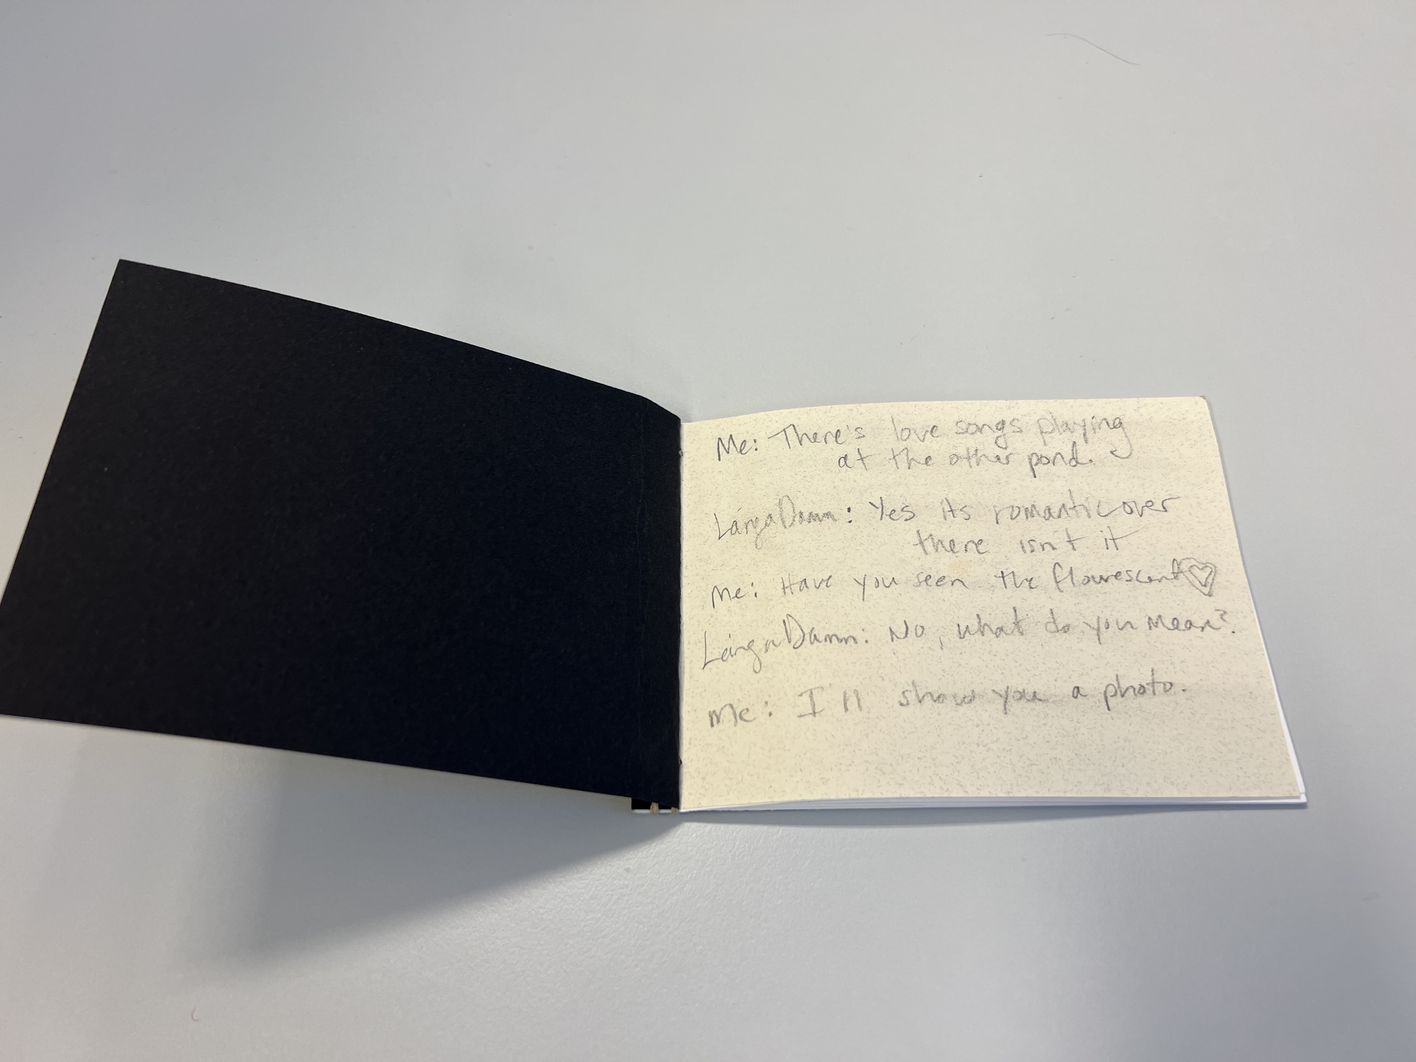 Me: There's love songs playing
at the other pond.
LångaDamm: Yes its romantic over
there isn't it
Me: Have you seen the flourescent ♡
LångaDamm: No, what do you mean?
Me: I'll show you a photo.